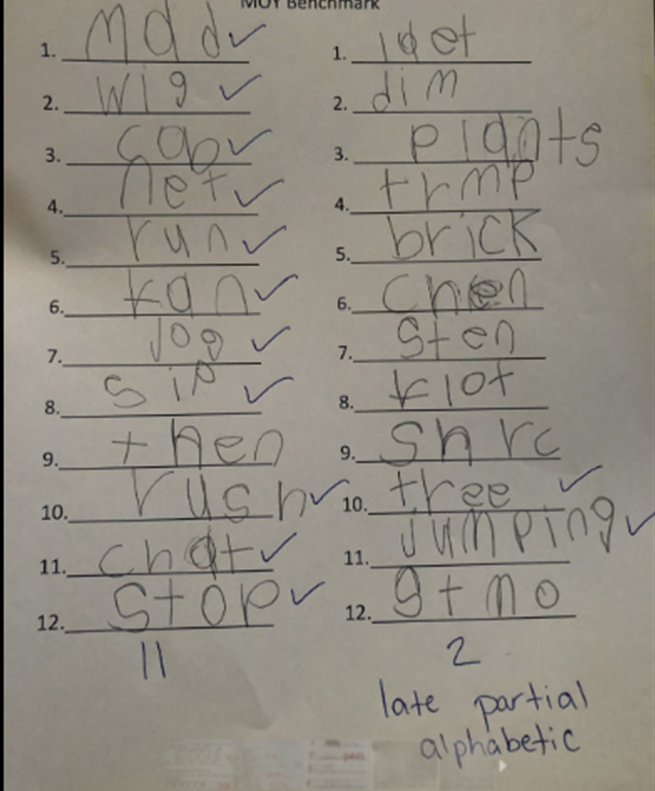 MOY Benchmark
1. mad ✓
2. wig ✓
3. cab ✓
4. net ✓
5. run ✓
6. kan ✓
7. jog ✓
8. sip ✓
9. then
10. rush ✓
11. chat ✓
12. stop ✓
11
1.
2. dim
3. plants
4. trmp
5. brick
6. chen
7. sten
8. klot
9. shrc
10. tree ✓
11. jumping ✓
12. gtmo
2
late partial
alphabetic